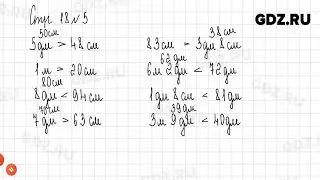 GDZ.RU
Стр. 18 № 5
50см
5дм > 48см
1м > 20см
80см
8дм < 94см
70см
7дм > 63см
38см
83см = 3дм 8см
62дм
6м 2дм < 72дм
1дм 8см < 81дм
39дм
3м 9дм < 40дм